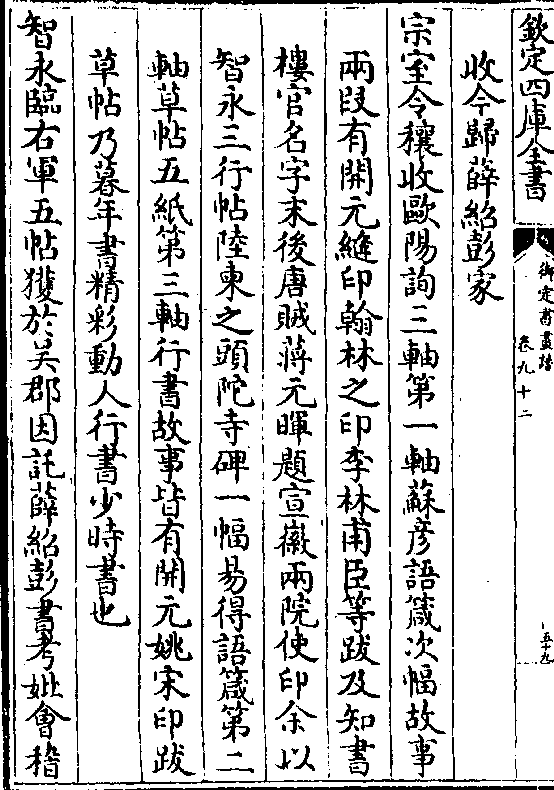 欽定四庫全書
御定書畫譜
卷九十二
五十九
收今歸薛紹彭家
宗室令穰收歐陽詢三軸第一軸蘇彥語箴次幅故事
兩段有開元縫印翰林之印李林甫臣等跋及知書
樓官名字末後唐賊蔣元暉題宣徽兩院使印余以
智永三行帖陸柬之頭陀寺碑一幅易得語箴第二
軸草帖五紙第三軸行書故事皆有開元姚宋印跋
草帖乃暮年書精彩動人行書少時書也
智永臨右軍五帖獲於吳郡因託薛紹彭書考妣會稽